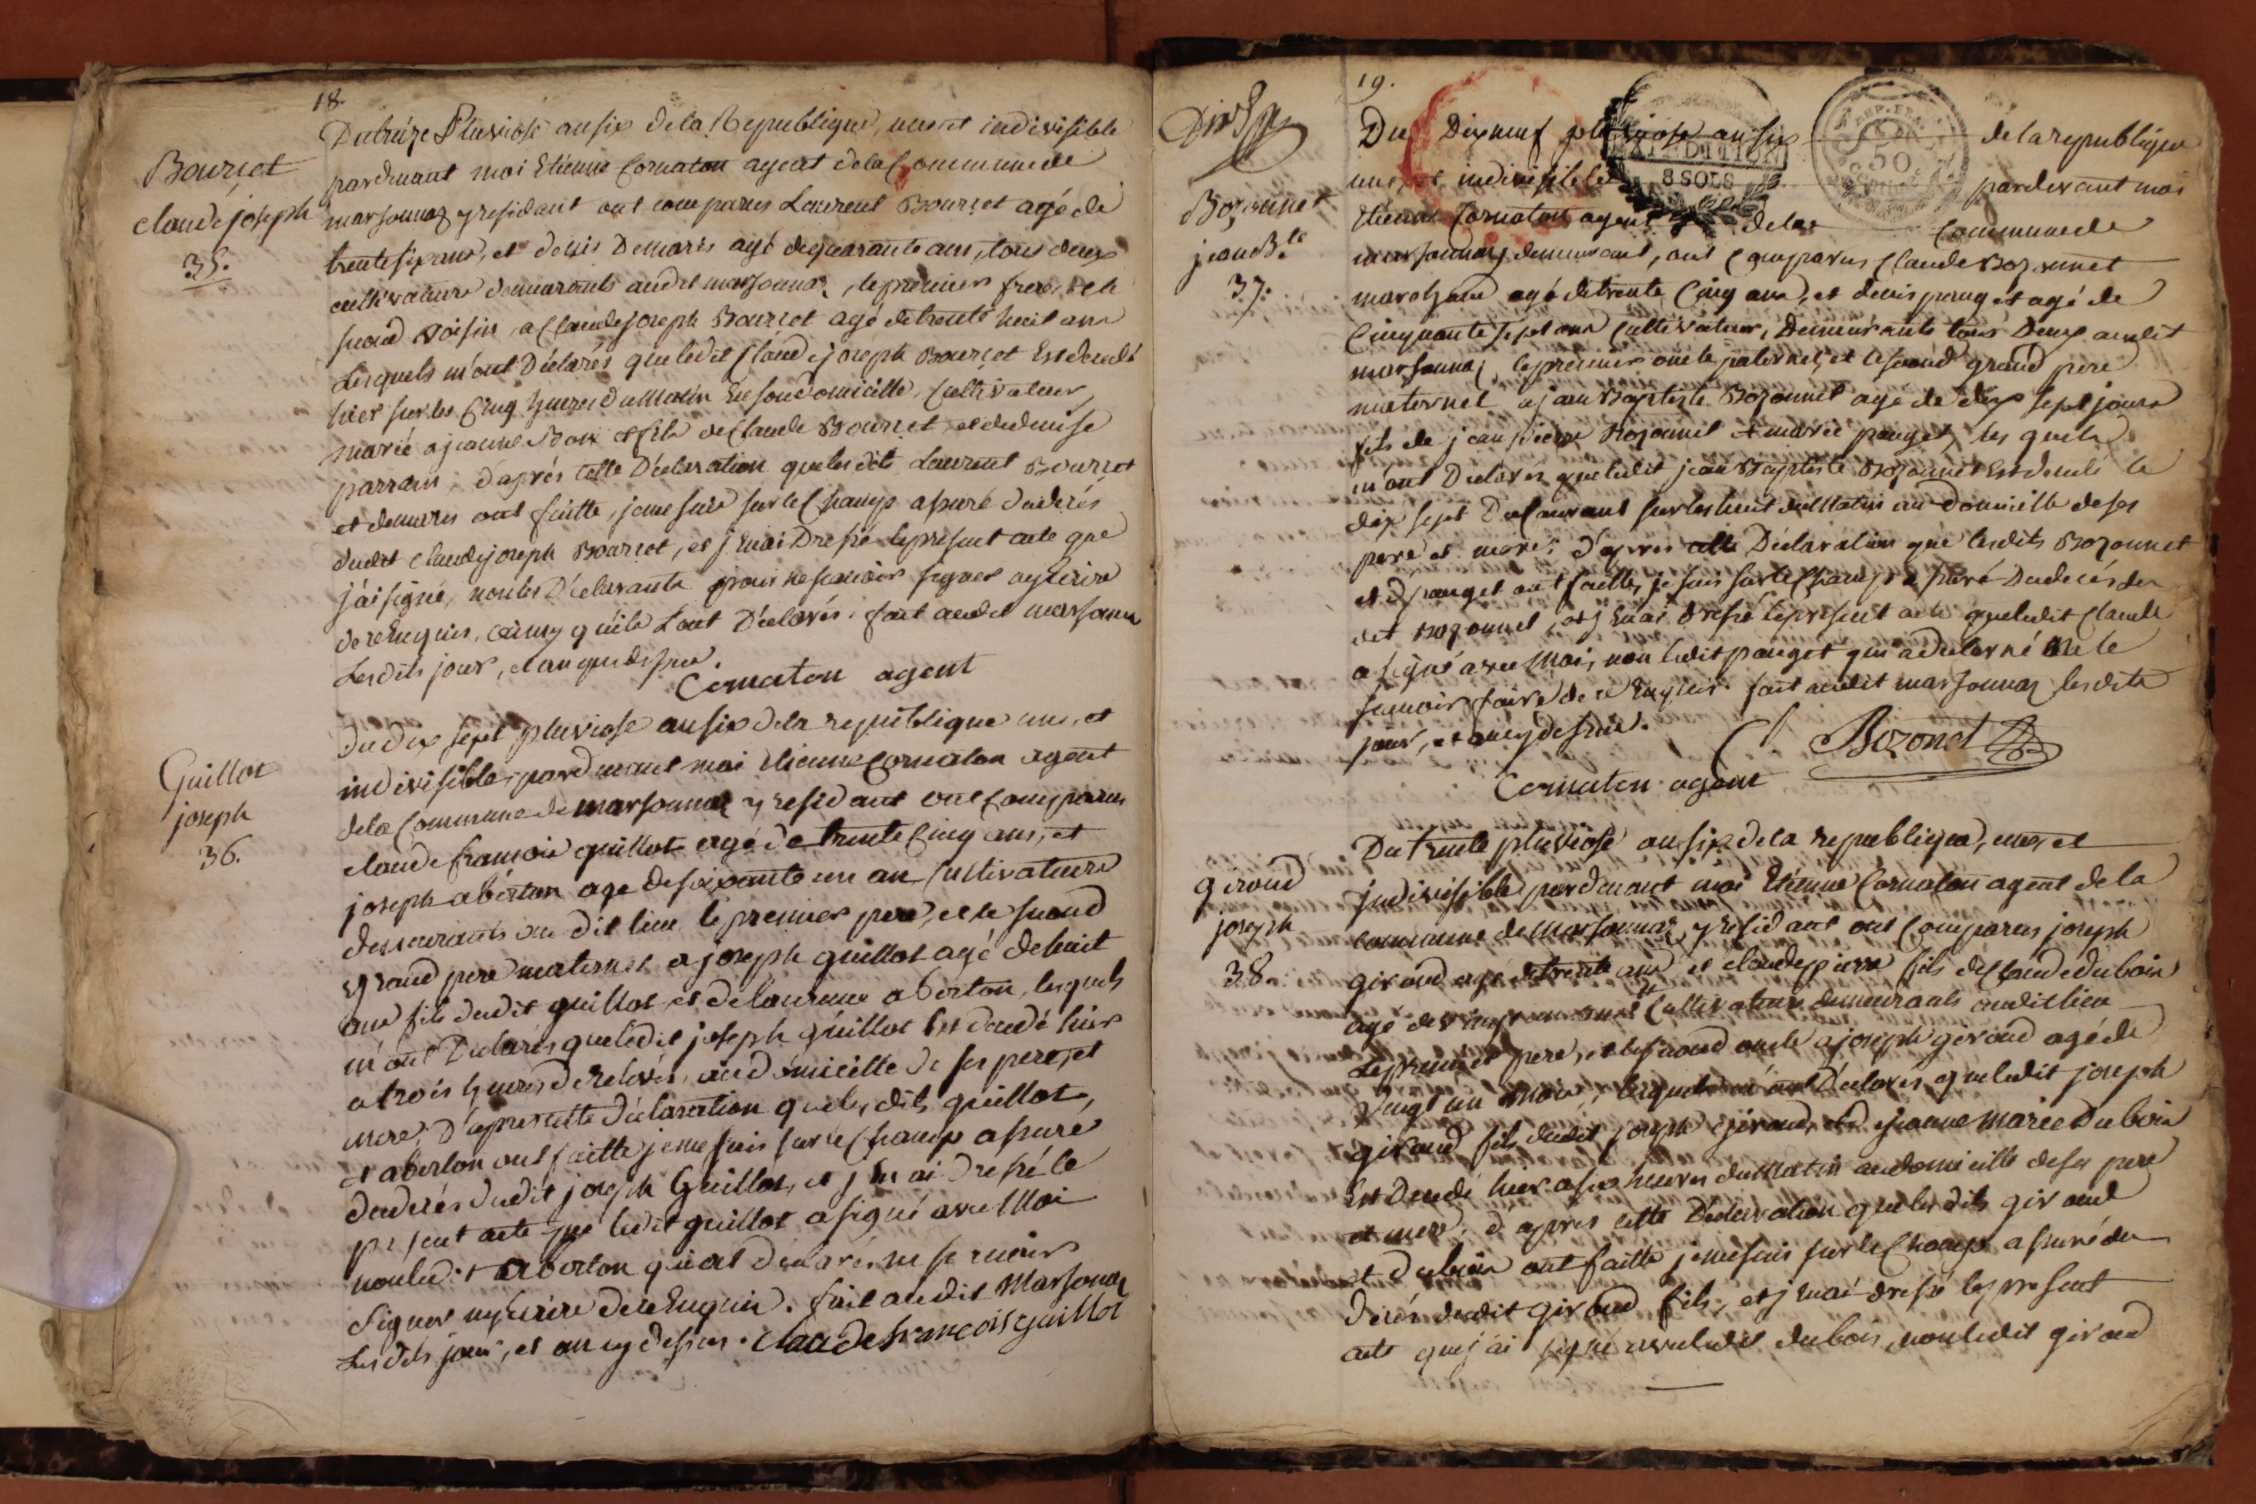 18.
Du treize Pluviose an six de la Republique, une et indivisible
pardevant moi Etienne Cornaton agent de la Commune de
marsonnaz y residant ont comparus Laurent Bourcet agé de
trente six ans, et denis Demaris agé de quarante ans, tous deux
cultivateurs demeurants audit marsonnaz, le premier frere, et le
second voisin, a Claude joseph Bourcet agé de trente huit ans
Lesquels m'ont Déclarés que ledit Claude joseph Bourcet Est décédé
hier sur les Cinq heures du Matin En son domicille, Cultivateur,
marié a jeanne et fils de Claude Bourcet, et de denise
parrain, d'aprés cette Déclaration que lesdits Laurent Bourcet
et demaris ont faitte, je me suis sur le Champ assuré du decés
dudit Claude joseph Bourcet, et j'En ai Dressé le présent acte que
j'ai signé, non les Déclarants pour ne scavoir signer ny Ecrire
de ce Enquis, ainsy qu'ils L'ont Déclarés. fait audit marsonna
Lesdits jour, et an que dessus.
Cornaton agent
Bourcet
claude joseph
35.
du dix sept pluviose an six de la republique une, et
indivisible, pardevant moi etienne Cornaton agent
de la Commune de marsonnaz y residant ont Comparus
claude francois guillot agé de trente Cinq ans, et
joseph aberton age de soixante un an Cultivateurs
demeurants au dit lieu le premier pere, et le second
grand pere maternel a joseph guillot agé de huit
ans fils dudit guillot et de laurence aberton, lesquels
m'ont Déclarés que ledit joseph guillot Est décédé hier
a trois heures de relevés, au domicille de ses pere, et
mere, D'apres cette déclaration que lesdits guillot,
et aberton ont faitte je me suis sur le Champ assuré
du decés dudit joseph Guillot, et j'En ai Dressé le
présent acte que ledit guillot a signé avec Moi
non ledit aberton qui at déclaré ne scavoir
signer ny Ecrire de ce Enquis. fait audit Marsonaz
Lesdits jour, et an cy dessus. claude francois guillot
Guillot
joseph
36.
19.
Du Dix neuf pluviose an six de la republique
une et indivisible pardevant moi
Etienne Cornaton agent de la Commune de
marsonnaz demeurant, ont Comparus Claude Bozonnet
marchand agé de trente Cinq ans, et denis pauget agé de
Cinquante sept ans Cultivateur, Demeurants tous Deux audit
marsonnaz, le premier oncle paternel, et le second grand pere
maternel a jean Baptiste Bozonnet agé de dix sept jours
fils de jean pierre Bozonnet et marie pauget, les quels
m'ont Déclarés que ledit jean Baptiste Bozonnet Est décédé le
dix sept Du Courant sur les huit du Matin au Domicille de ses
pere et mere. d'apres cette Déclaration que lesdits Bozonnet
et pauget ont faitte, je suis sur le Champ assuré Du decés du
dit Bozonnet, et j'En ai dressé le présent acte que ledit Claude
a signé avec Moi, non ledit pauget qui a declarré ne le
scavoir faire de ce Enquis. fait audit marsonnaz lesdits
jour, et an cy dessus.
Cl. Bozonet
Cornaton agent
Bozonnet
jean B.te
37.
EXPEDITION
8 SOLS
REP. FRA.
50
Du trente pluviose an six de la republique, une, et
Indivisible pardevant moi Etienne Cornaton agent de la
commune de Marsonnaz, y residant ont Comparus joseph
giroud agé de trente ans et claude pierre fils de Claude dubois
age de vingt Cultivateurs demeurants audit lieu
Le premier pere, et le second oncle a joseph giroud agé de
Vingt un Mois, lesquels m'ont Déclarés que ledit joseph
giroud fils dudit joseph giroud, et jeanne marie Dubois
Est Décédé hier a six heures du Matin au domicille de ses pere
et mere. d'apres cette Déclaration que lesdits giroud
et dubois ont faitte je me suis sur le Champ assuré du
décés dudit giroud fils, et j'En ai dressé le présent
acte que j'ai signé avec ledit dubois, non ledit giroud
giroud
joseph
38.